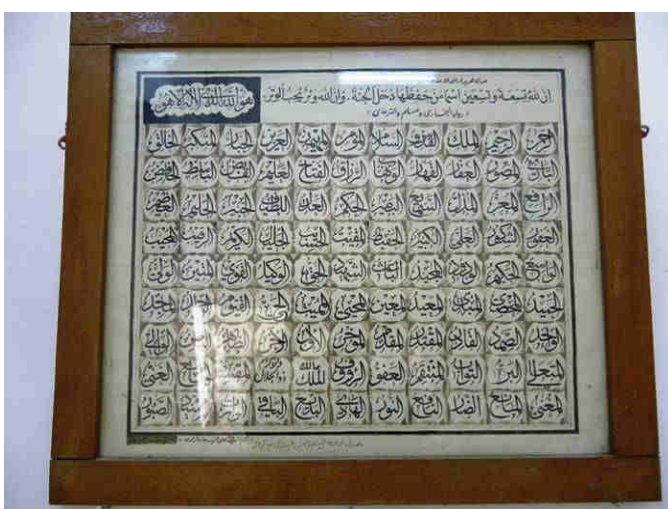 إن لله تسعة وتسعين اسما من حفظها دخل الجنة. وإن الله وتر يحب الوتر.
هو الله الذي لا إله إلا هو
رواه البخاري ومسلم والترمذي
الرحمن الرحيم الملك القدوس السلام المؤمن المهيمن العزيز الجبار المتكبر الخالق
البارئ المصور الغفار القهار الوهاب الرزاق الفتاح العليم القابض الباسط الخافض
الرافع المعز المذل السميع البصير الحكم العدل اللطيف الخبير الحليم العظيم
الغفور الشكور العلي الكبير الحفيظ المقيت الحسيب الجليل الكريم الرقيب المجيب
الواسع الحكيم الودود المجيد الباعث الشهيد الحق الوكيل القوي المتين الولي
الحميد المحصي المبدئ المعيد المعين المحيي المميت الحي القيوم الواجد الماجد
الواحد الصمد القادر المقتدر المقدم المؤخر الأول الآخر الظاهر الباطن الوالي
المتعالي البر التواب المنتقم العفو الرؤوف مالك الملك ذو الجلال والإكرام المقسط الجامع الغني
المغني المانع الضار النافع النور الهادي البديع الباقي الوارث الرشيد الصبور